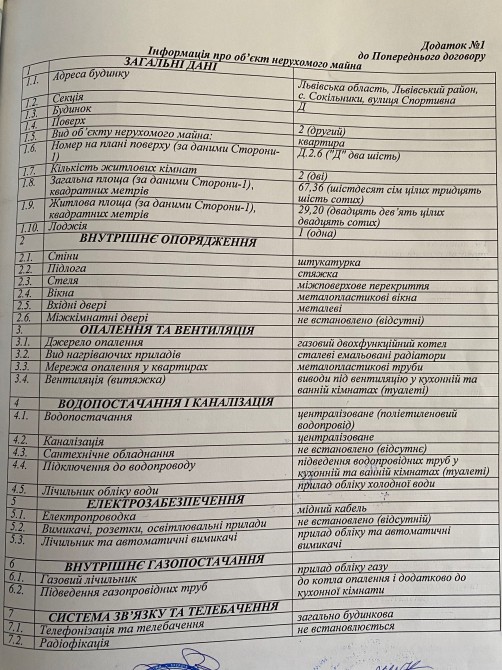 Додаток №1
до Попереднього договору
Інформація про об'єкт нерухомого майна
1 ЗАГАЛЬНІ ДАНІ
1.1. Адреса будинку Львівська область, Львівський район,
с. Сокільники, вулиця Спортивна
1.2. Секція Д
1.3. Будинок
1.4. Поверх 2 (другий)
1.5. Вид об'єкту нерухомого майна: квартира
1.6. Номер на плані поверху (за даними Сторони- Д.2.6 ("Д" два шість)
1)
1.7. Кількість житлових кімнат 2 (дві)
1.8. Загальна площа (за даними Сторони-1), 67,36 (шістдесят сім цілих тридцять
квадратних метрів шість сотих)
1.9. Житлова площа (за даними Сторони-1), 29,20 (двадцять дев'ять цілих
квадратних метрів двадцять сотих)
1.10. Лоджія 1 (одна)
2 ВНУТРІШНЄ ОПОРЯДЖЕННЯ
2.1. Стіни штукатурка
2.2. Підлога стяжка
2.3. Стеля міжповерхове перекриття
2.4. Вікна металопластикові вікна
2.5. Вхідні двері металеві
2.6. Міжкімнатні двері не встановлено (відсутні)
3. ОПАЛЕННЯ ТА ВЕНТИЛЯЦІЯ
3.1. Джерело опалення газовий двохфункційний котел
3.2. Вид нагріваючих приладів сталеві емальовані радіатори
3.3. Мережа опалення у квартирах металопластикові труби
3.4. Вентиляція (витяжка) виводи під вентиляцію у кухонній та
ванній кімнатах (туалеті)
4 ВОДОПОСТАЧАННЯ І КАНАЛІЗАЦІЯ
4.1. Водопостачання централізоване (поліетиленовий
водопровід)
4.2. Каналізація централізоване
4.3. Сантехнічне обладнання не встановлено (відсутнє)
4.4. Підключення до водопроводу підведення водопровідних труб у
кухонній та ванній кімнатах (туалеті)
4.5. Лічильник обліку води прилад обліку холодної води
5 ЕЛЕКТРОЗАБЕЗПЕЧЕННЯ
5.1. Електропроводка мідний кабель
5.2. Вимикачі, розетки, освітлювальні прилади не встановлено (відсутній)
5.3. Лічильник та автоматичні вимикачі прилад обліку та автоматичні
вимикачі
6 ВНУТРІШНЄ ГАЗОПОСТАЧАННЯ
6.1. Газовий лічильник прилад обліку газу
6.2. Підведення газопровідних труб до котла опалення і додатково до
кухонної кімнати
7 СИСТЕМА ЗВ'ЯЗКУ ТА ТЕЛЕБАЧЕННЯ
7.1. Телефонізація та телебачення загально будинкова
7.2. Радіофікація не встановлюється